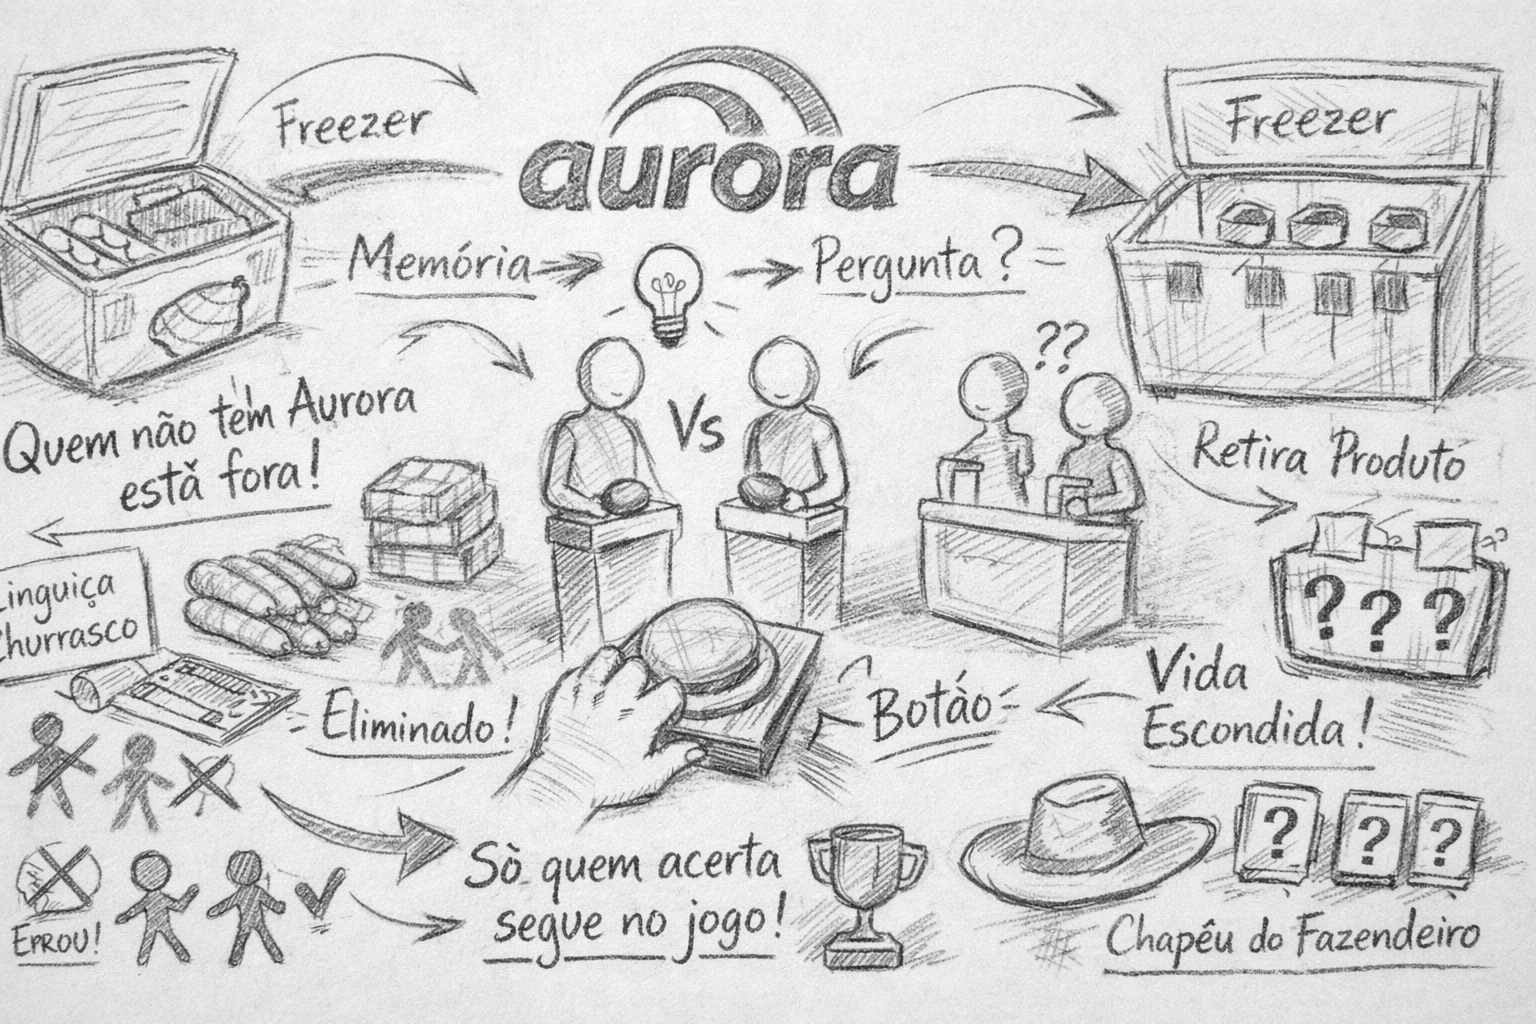 Freezer
aurora
Freezer
Memória
Pergunta?
Quem não tem Aurora
está fora!
Vs
??
Retira Produto
Linguiça
Churrasco
? ? ?
Eliminado!
Botão
Vida
Escondida!
Só quem acerta
segue no jogo!
? ? ?
EPROU!
Chapêu do Fazendeiro